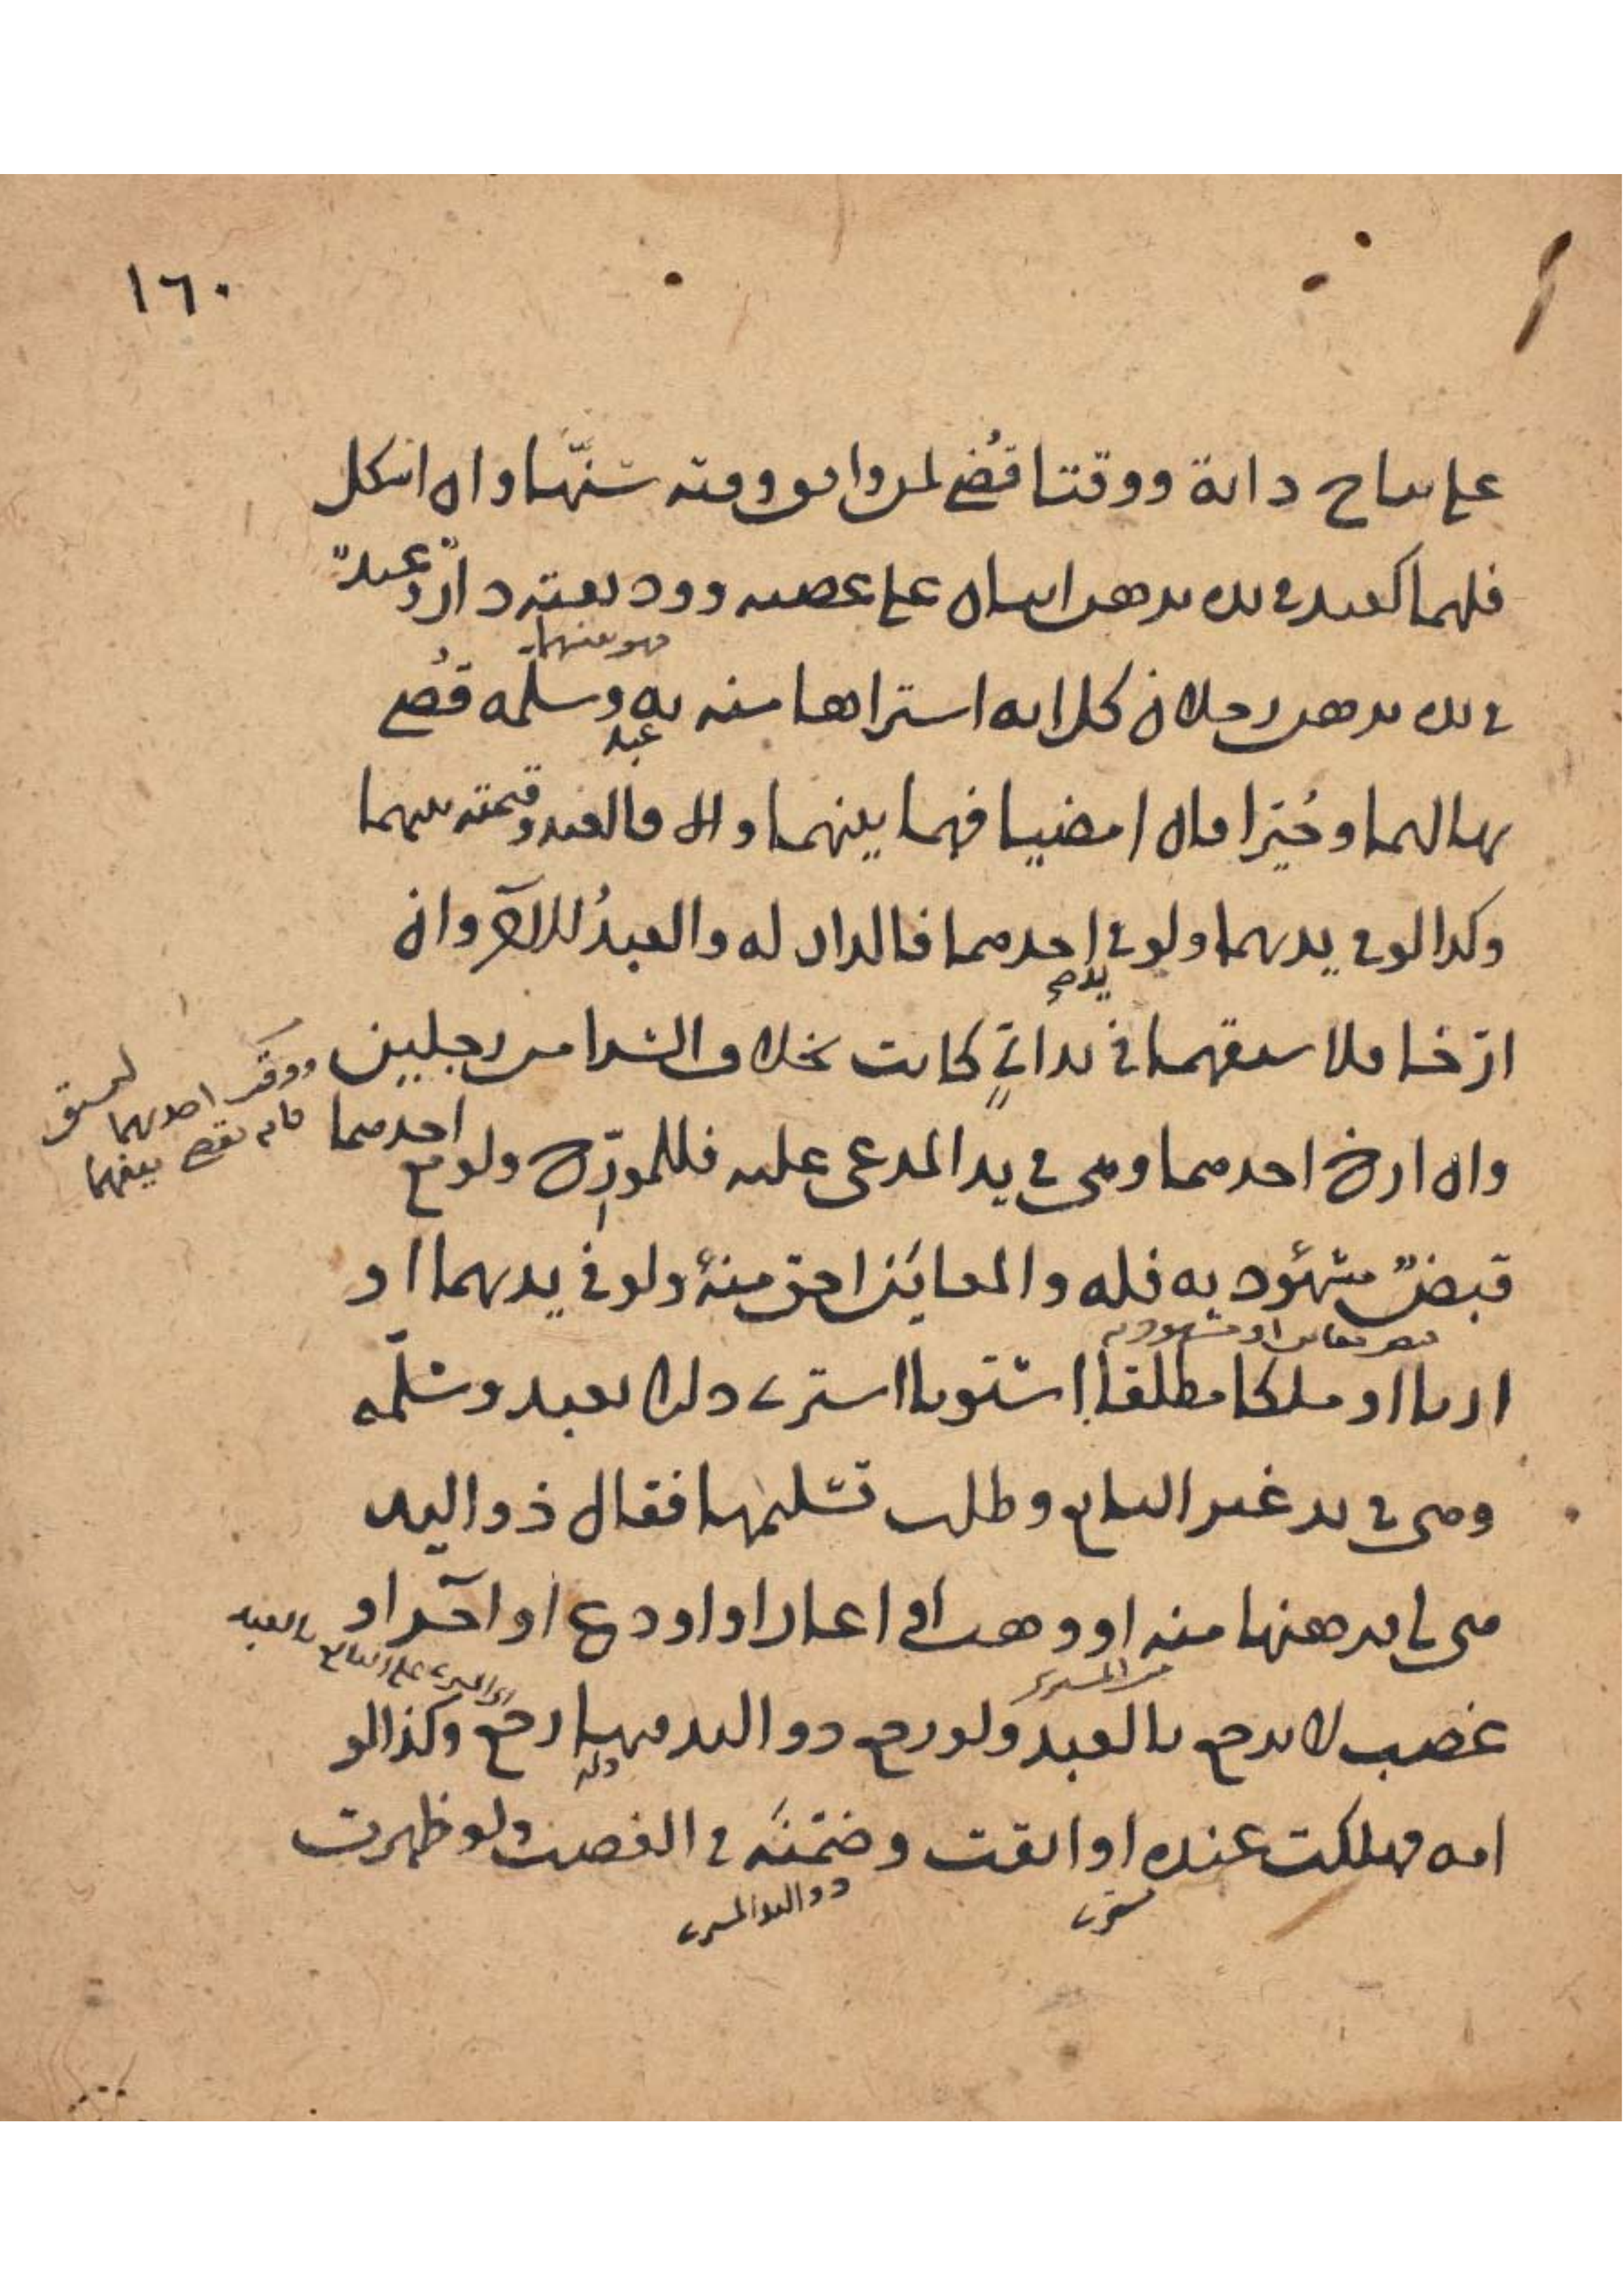 ١٦٠
على نتاج دابة ووقتا قُضي لمن وافق وقته سنّها وان اشكل
فلهما كعبد في يد برهن اثنان على غصبه ووديعته دارٌ وعبدٌ
في يد برهن رجلان كل انه اشتراها منه به وسلمه قُضي
فهو بينهما
عبد
بها لهما وخُيّرا فان امضيا فهما بينهما والا فالعبد وقيمته بينهما
وكذا لو في يديهما ولو في احدهما فالدار له والعبدُ للآخر وان
ارّخا فلا سبقهما في يد ايٍّ كانت بخلاف الشرا من رجلين
ووقت احدهما
وان ارخ احدهما وهي في يد المدعى عليه فللمورّخ ولو مع احدهما
فانه يقضى بينهما
قبضٌ مشهُود به فله والمعايَن احق منهُ ولو في يديهما او
ارثا او ملكا مطلقا استويا اشترى دارا بعبد وسلّمه
وهي في يد غير البايع وطلب تسليمها فقال ذو اليد
هي لي برهنها منه او وهب او اعار او اودع او آجر او
غصب لا يرجع بالعبد ولو رجع ذو اليد فيها رجع وكذا لو
من المشتري
امه فهلكت عنده او ابقت وضمّنَه في الغصب ولو ظهرت
ذو اليد المشتري